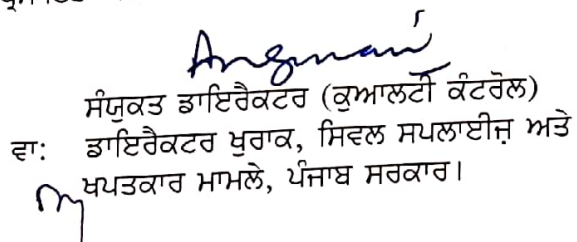 ਸੰਯੁਕਤ ਡਾਇਰੈਕਟਰ (ਕੁਆਲਟੀ ਕੰਟਰੋਲ)
ਵਾ: ਡਾਇਰੈਕਟਰ ਖੁਰਾਕ, ਸਿਵਲ ਸਪਲਾਈਜ਼ ਅਤੇ
ਖਪਤਕਾਰ ਮਾਮਲੇ, ਪੰਜਾਬ ਸਰਕਾਰ।